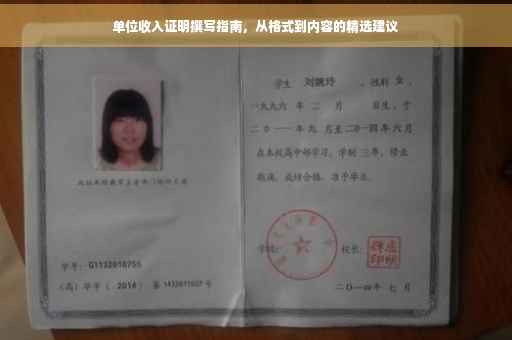 单位收入证明撰写指南，从格式到内容的精选建议
学生 刘婉玲 ，性别 女 ，
一九九六 年 二 月 日生，于
二〇一一年九 月至二〇一四年六月
在本校高中部学习，学制 三年，修业
期满，成绩合格，准予毕业。
学校： 校长：
二〇一四年 七 月
学号： G1132010755
（高）毕字（ 2014 ）第 1432011027 号